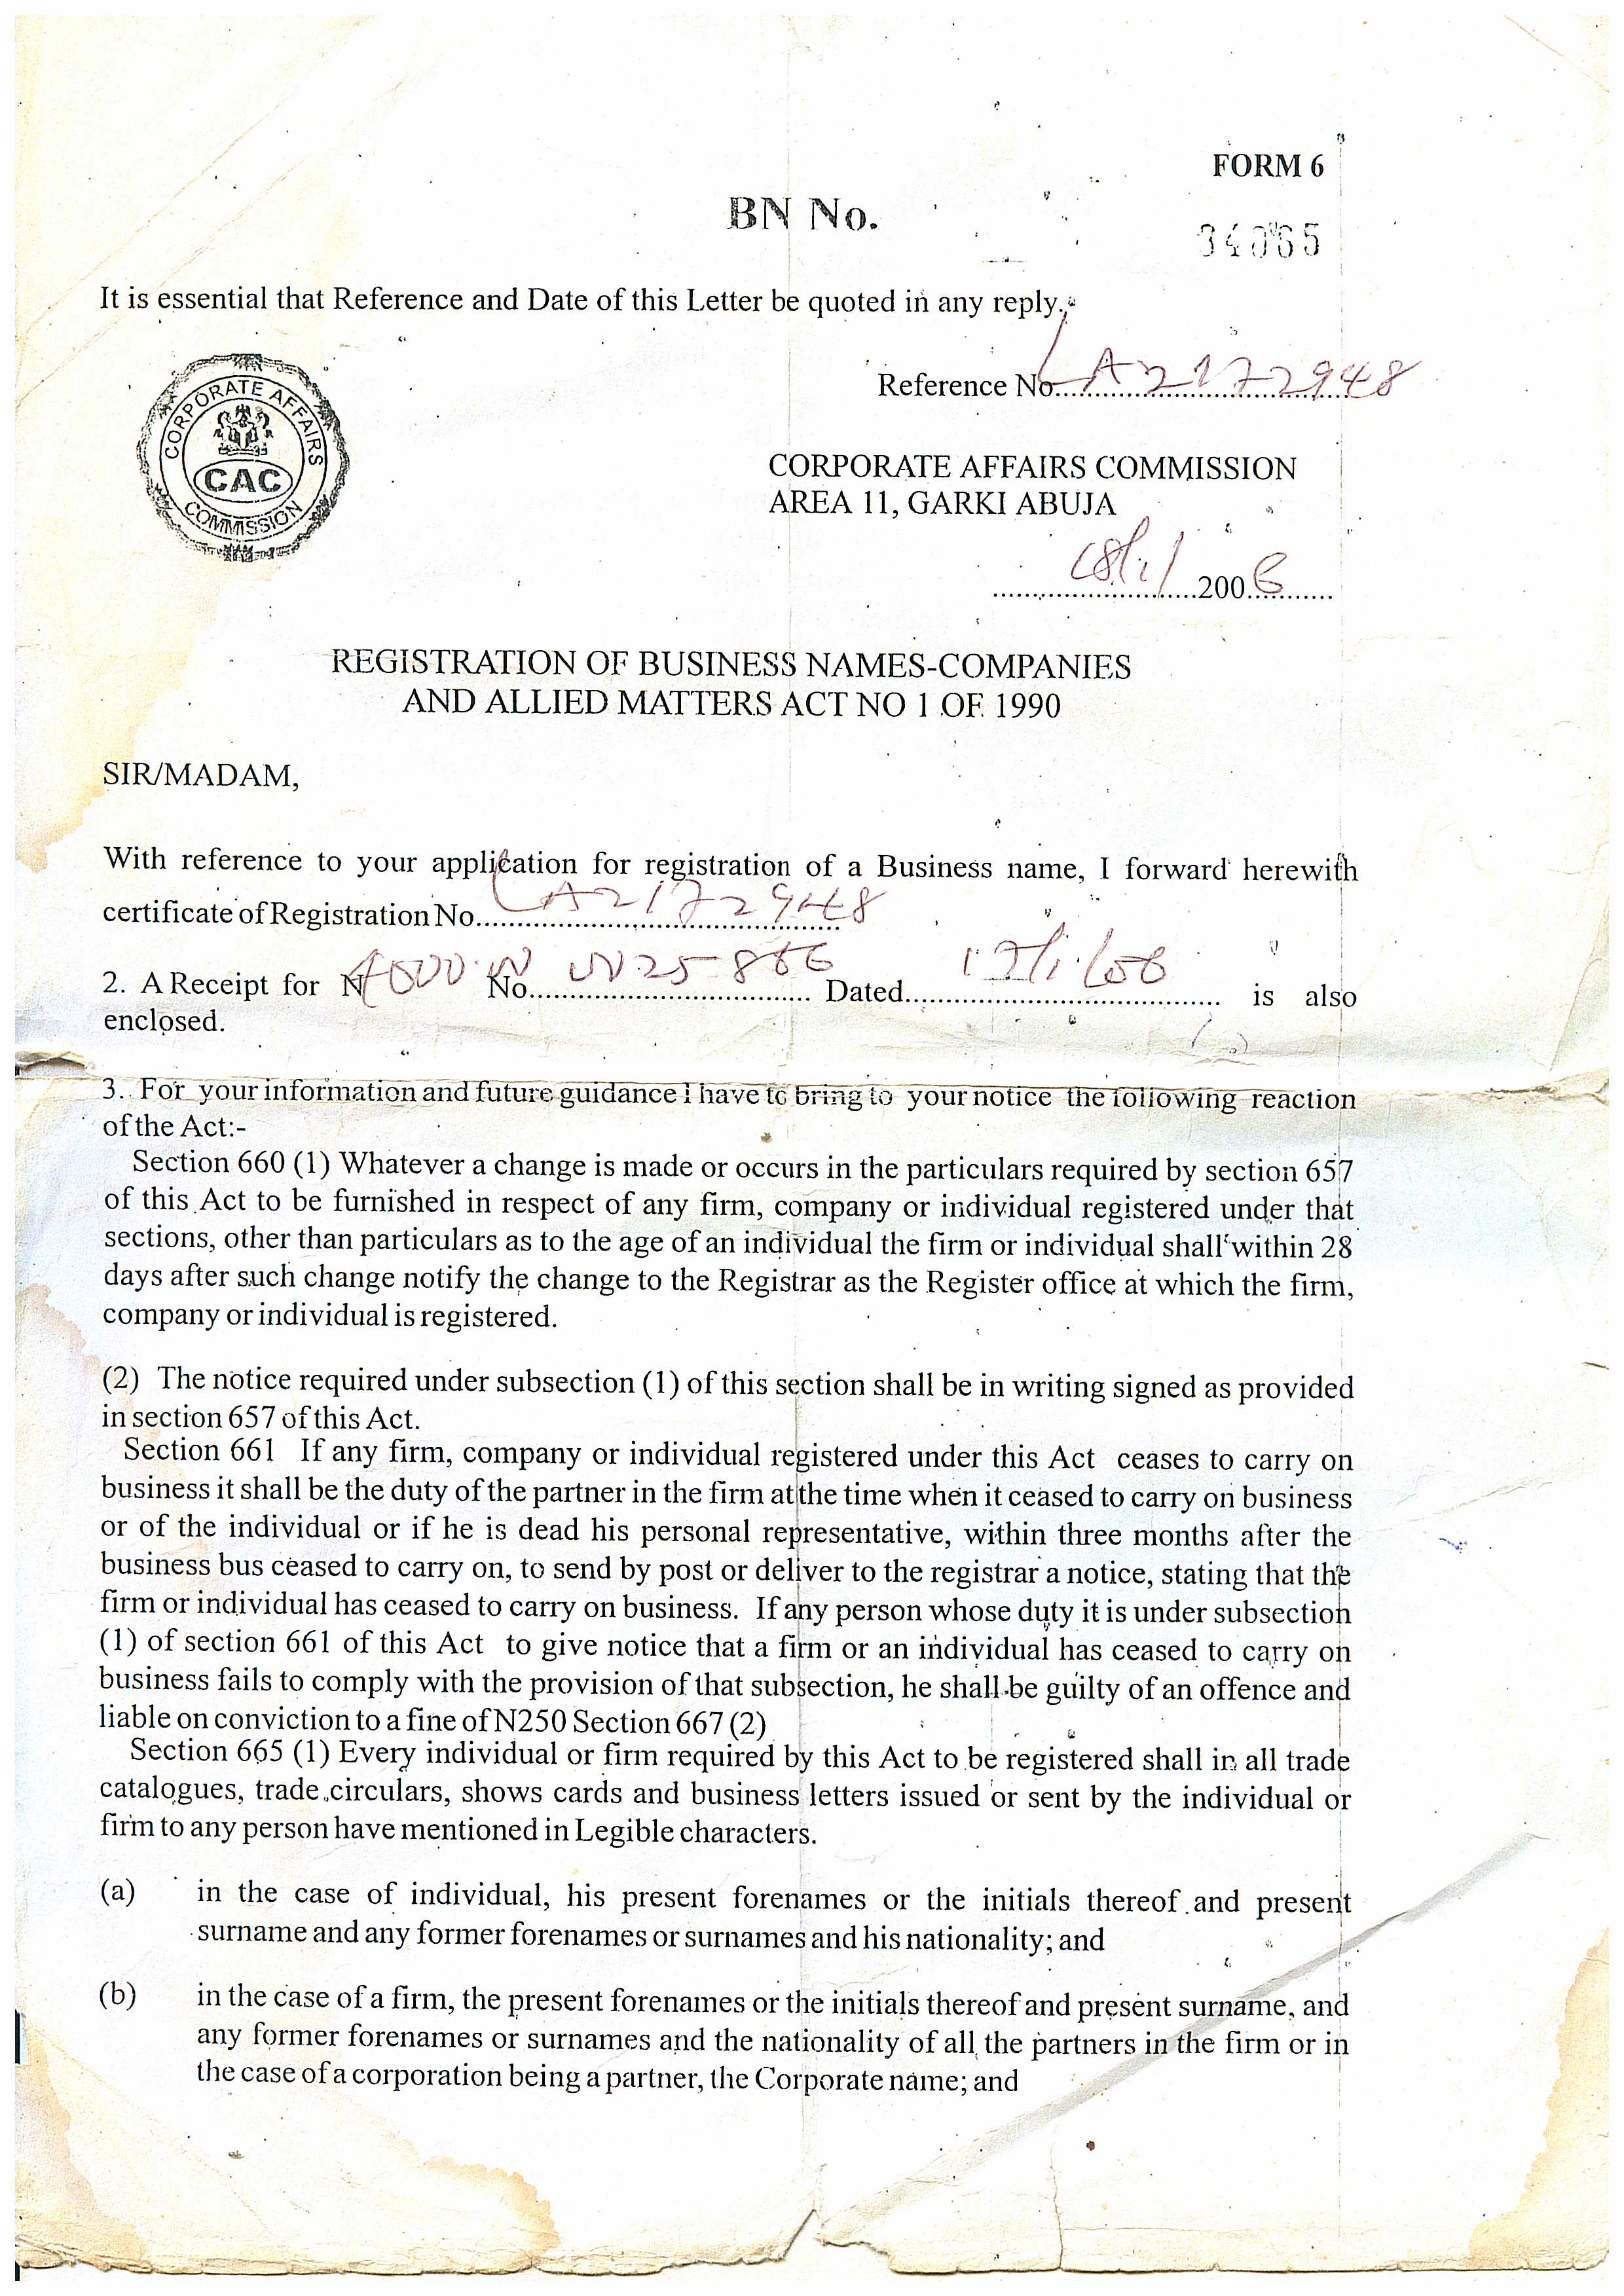 FORM 6
BN No.
34065
It is essential that Reference and Date of this Letter be quoted in any reply.
CORPORATE AFFAIRS
CAC
COMMISSION
Reference No. LA2172948
CORPORATE AFFAIRS COMMISSION
AREA 11, GARKI ABUJA
18/1/ 2006
REGISTRATION OF BUSINESS NAMES-COMPANIES
AND ALLIED MATTERS ACT NO 1 OF 1990
SIR/MADAM,
With reference to your application for registration of a Business name, I forward herewith
certificate of Registration No. LA2172948
2. A Receipt for N No. Dated is also
enclosed.
3. For your information and future guidance I have to bring to your notice the following reaction
of the Act:-
Section 660 (1) Whatever a change is made or occurs in the particulars required by section 657
of this Act to be furnished in respect of any firm, company or individual registered under that
sections, other than particulars as to the age of an individual the firm or individual shall within 28
days after such change notify the change to the Registrar as the Register office at which the firm,
company or individual is registered.
(2) The notice required under subsection (1) of this section shall be in writing signed as provided
in section 657 of this Act.
Section 661 If any firm, company or individual registered under this Act ceases to carry on
business it shall be the duty of the partner in the firm at the time when it ceased to carry on business
or of the individual or if he is dead his personal representative, within three months after the
business bus ceased to carry on, to send by post or deliver to the registrar a notice, stating that the
firm or individual has ceased to carry on business. If any person whose duty it is under subsection
(1) of section 661 of this Act to give notice that a firm or an individual has ceased to carry on
business fails to comply with the provision of that subsection, he shall be guilty of an offence and
liable on conviction to a fine of N250 Section 667 (2)
Section 665 (1) Every individual or firm required by this Act to be registered shall in all trade
catalogues, trade circulars, shows cards and business letters issued or sent by the individual or
firm to any person have mentioned in Legible characters.
(a) in the case of individual, his present forenames or the initials thereof and present
surname and any former forenames or surnames and his nationality; and
(b) in the case of a firm, the present forenames or the initials thereof and present surname, and
any former forenames or surnames and the nationality of all the partners in the firm or in
the case of a corporation being a partner, the Corporate name; and